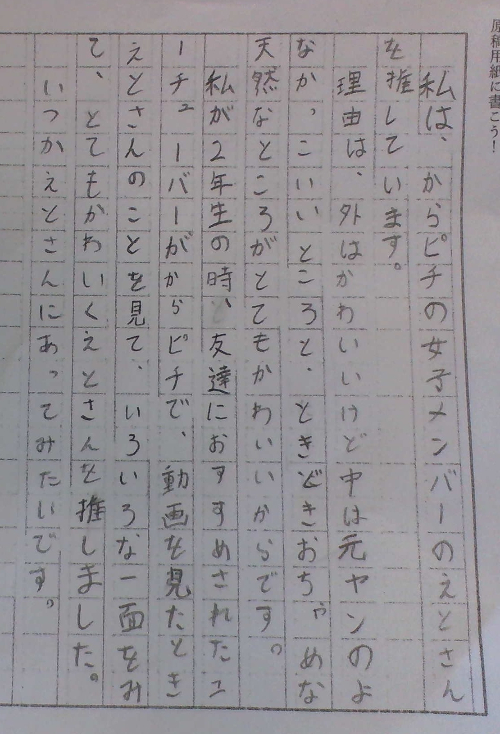 原稿用紙に書こう！
私は、からピチの女子メンバーのえとさん
を推しています。
理由は、外はかわいいけど中は元ヤンのよ
なかっこいいところと、ときどきおちゃめな
天然なところがとてもかわいいからです。
私が2年生の時、友達におすすめされたユ
ーチューバーがからピチで、動画を見たとき
えとさんのことを見て、いろいろな一面をみ
て、とてもかわいくえとさんを推しました。
いつかえとさんにあってみたいです。